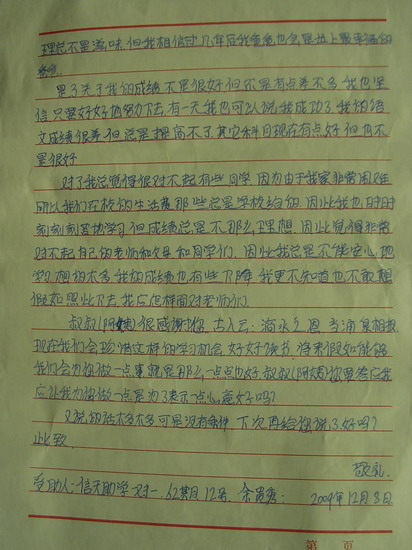 理总不是滋味。但我相信过几年后我爸爸也会是世上最幸福的
爸爸。
是了关于我的成绩不是很好但不是有点差不多我也坚
信只要好好的努力下去，有一天我也可以说我成功了，我的语
文成绩很差，但总是提高不了其它科目现在有点好但也不
是很好
对了我总觉得很对不起有些同学因为由于我家非常困难
所以我们在校的生活费那些总是学校给的因此我也时时
刻刻刻苦的学习但成绩总是不那么理想。因此觉得非常
对不起自己的老师和父母和同学们。因此我总是不能安心地
学习想的太多我的成绩也有些下降我更不知道也不敢想
假如照此下去我应怎样面对老师们。
叔叔(阿姨)很感谢您。古人云：滴水之恩当涌泉相报
现在我们会珍惜这样的学习机会，好好读书，将来假如能够
我们会为你做一点事就是那么一点点也好叔叔(阿姨)你要答应我
应让我为你做一点是为了表示一点心意好吗?
又说的话太多太多可是没有条件下次再给您说了好吗?
此致
敬礼
受助人：信天助学一对一，62期月12号 余贵秀：
2009年12月8日
第 页